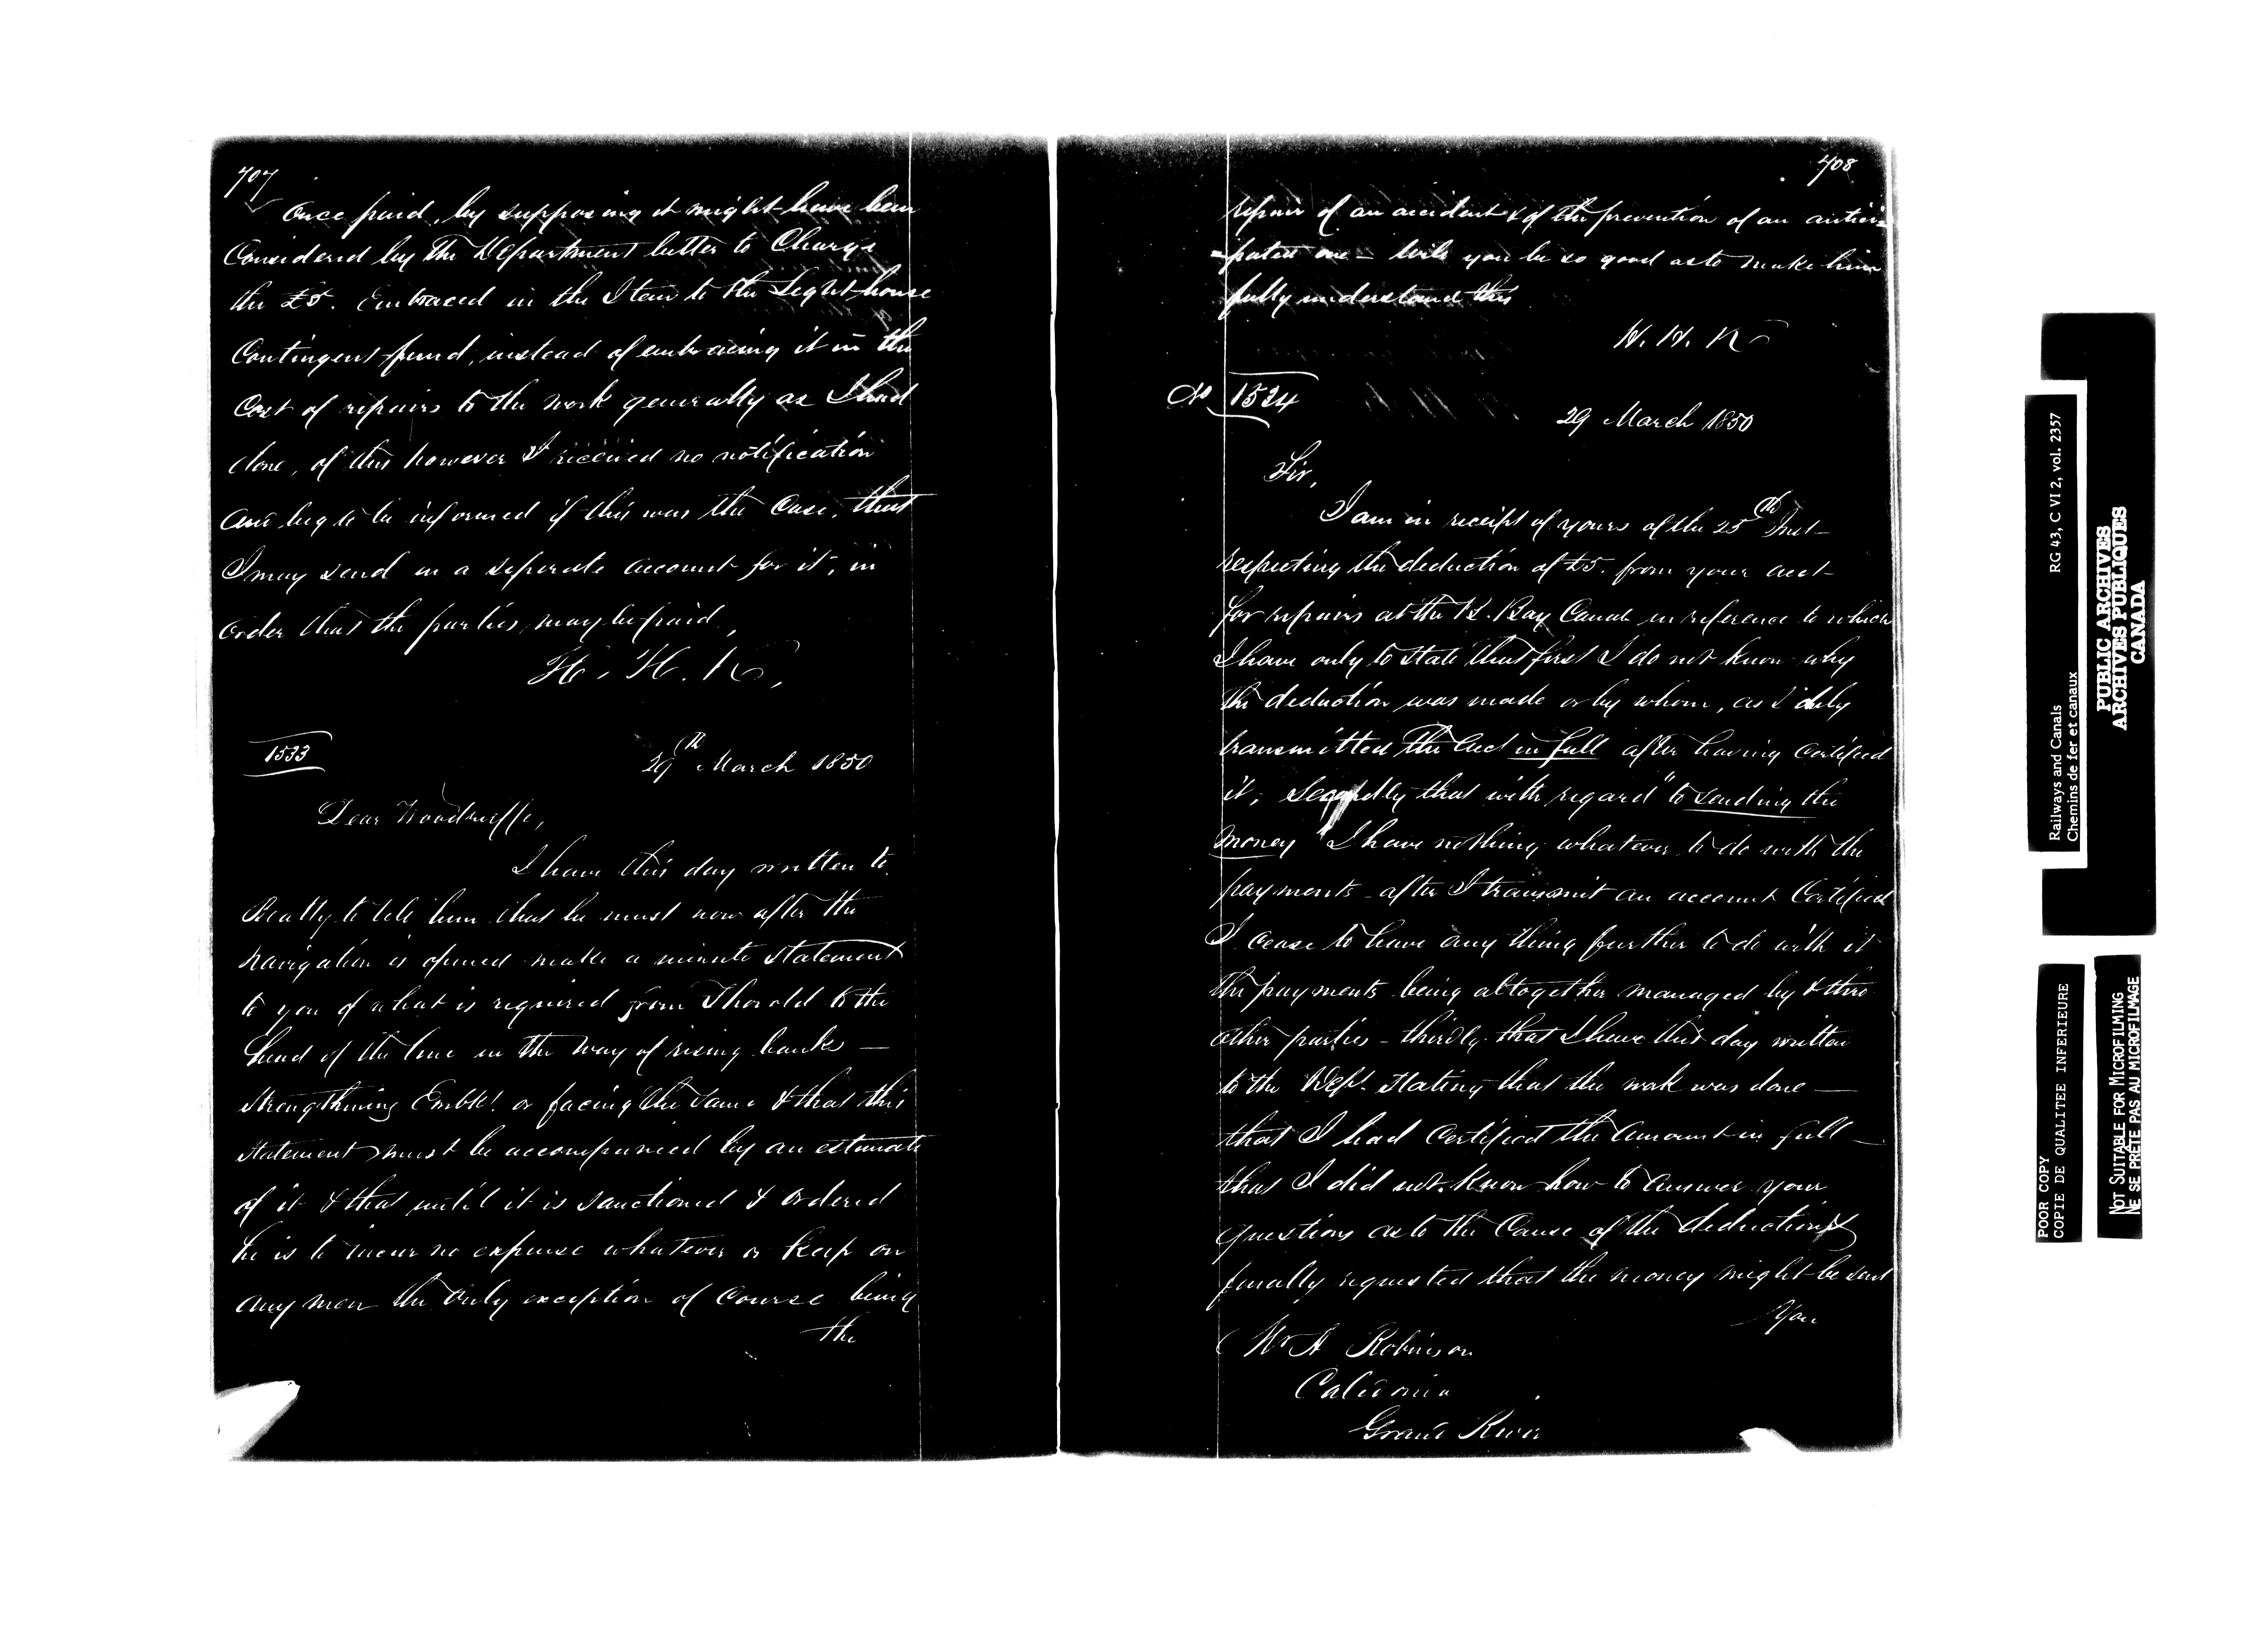 707
Once paid, by supposing it might have been
Considered by the Department better to Charge
the £5. Embraced in the Item to the Light house
Contingent fund, instead of embracing it in the
Cost of repairs to the work generally as I had
done, of this however I received no notification
and beg to be informed if this was the Case, that
I may send in a seperate account for it, in
order that the parties may be paid,
H. H. K,
1533
29th March 1850
Dear Woodruffe,
I have this day written to
Beatty to tell him that he must now after the
navigation is opened make a minute Statement
to you of what is required from Thorold to the
head of the line in the way of rising banks —
Strengthening Embkt. or facing the same & that this
Statement must be accompanied by an estimate
of it & that until it is sanctioned & ordered
he is to incur no expense whatever or keep on
any men the only exception of Course being
the
708
repair of an accident & of the prevention of an antici=
=pated one – will you be so good as to make him
fully understand this
H. H. K
No 1534
29 March 1850
Sir,
I am in receipt of yours of the 25th Inst
respecting the deduction of £5. from your acct
for repairs at the B. Bay Canal in reference to which
I have only to State that first I do not know why
the deduction was made or by whom, as I duly
transmitted the acct in full after having Certified
it, Secondly that with regard "to sending the
money" I have nothing whatever to do with the
payments – after I transmit an account Certified
I cease to have any thing further to do with it
the payments being altogether managed by & thro
other parties – thirdly that I have this day written
to the Dept. Stating that the work was done —
that I had Certified the Amount in full —
that I did not know how to answer your
questions as to the Cause of the deduction &
finally requested that the money might be sent
You
Mr A Robinson
Caledonia
Grand River
Railways and Canals
Chemins de fer et canaux
RG 43, C VI 2, vol. 2357
PUBLIC ARCHIVES
ARCHIVES PUBLIQUES
CANADA
POOR COPY
COPIE DE QUALITEE INFERIEURE
NOT SUITABLE FOR MICROFILMING
NE SE PRÊTE PAS AU MICROFILMAGE